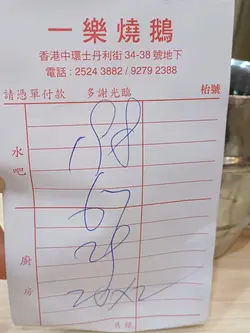 一樂燒鵝
香港中環士丹利街 34-38 號地下
電話 : 2524 3882 / 9279 2388
請憑單付款 多謝光臨 枱號
水吧
廚房
188
67
29